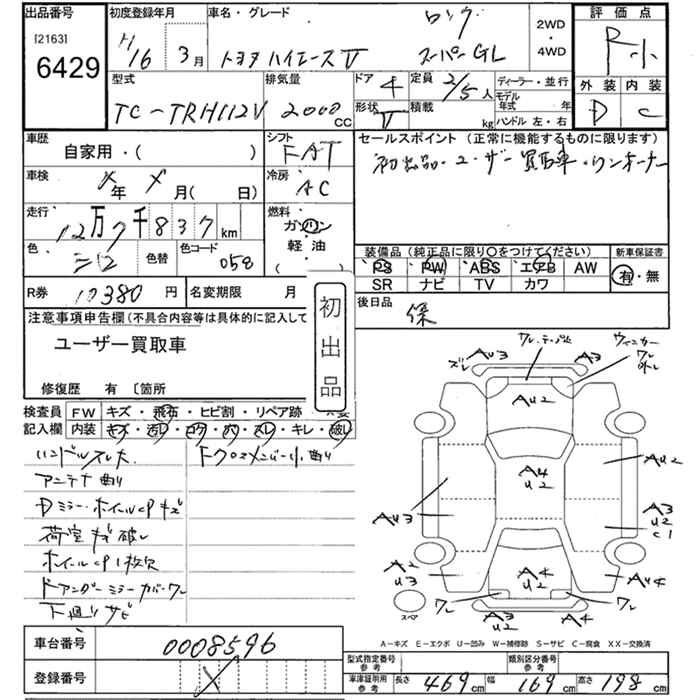 出品番号
[2163]
6429
初度登録年月
H16 3月
車名・グレード
ロング
トヨタ ハイエースV スーパーGL
2WD
・
4WD
評価点
R小
外装 内装
D C
型式
TC-TRH112V
排気量
2000 CC
ドア
4
形状
V
定員
2/5人
積載 kg
ディーラー・並行
モデル年式 年
ハンドル 左・右
車歴
自家用・( )
シフト
FAT
セールスポイント (正常に機能するものに限ります)
初出品・ユーザー買取車・ワンオーナー
車検
年 月( 日)
冷房
AC
走行
12万7千837km
燃料
ガソリン
軽油
( )
色
色替
色コード
058
装備品 (純正品に限り○をつけてください)
PS PW ABS エアB AW
SR ナビ TV カワ
新車保証書
有・無
R券
10380円
名変期限 月
後日品
保
注意事項申告欄(不具合内容等は具体的に記入して
ユーザー買取車
修復歴 有 〔箇所
初出品
検査員記入欄
FW キズ・飛石・ヒビ割・リペア跡・
内装 キズ・汚レ・コゲ・穴・スレ・キレ・破レ
ハンドルスレ大
トクロスメンバー小曲り
アンテナ曲り
Dミラー・ホイールCPキズ
荷室キズ破レ
ホイールCP1枚欠
ドアアンダーミラーカバーワレ
下廻りサビ
ズレ
AU3
ワレ
A3
ウィンカー
ワレ
AU2
A4
U2
AU2
AU3
A3
U2
C1
A2
U3
A4
U2
AU4
ワレ
ワレ
スペア
A3
U2
A4
A-キズ E-エクボ U-凹み W-補修跡 S-サビ C-腐食 XX-交換済
車台番号
0008596
登録番号
型式指定番号
参考
類別区分番号
参考
車庫証明用
参考
長さ 469cm
幅 169cm
高さ 198cm